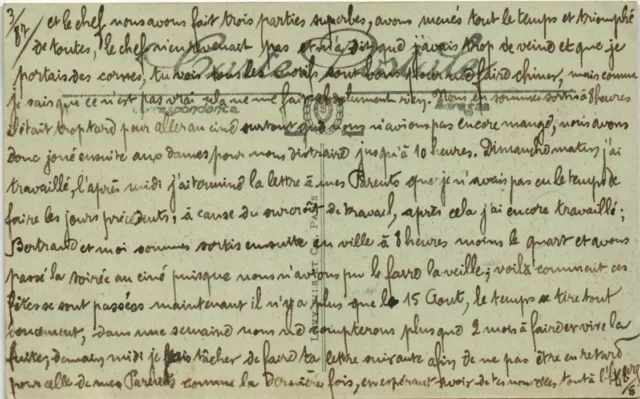 3/82 et le chef nous avons fait trois parties superbes, avons menés tout le temps et triomphé
de toutes, le chef n'en revenait pas et m'a dit que j'avais trop de veine et que je
portais des cornes, tu vois tous les motifs sont bons pour me faire chiner, mais comme
je sais que ce n'est pas vrai cela ne me fait absolument rien. Nous en sommes sortis à 8 heures
c'était trop tard pour aller au ciné surtout que nous n'avions pas encore mangé, nous avons
donc joué ensuite aux dames pour nous distraire jusqu'à 10 heures. Dimanche matin j'ai
travaillé, l'après midi j'ai terminé la lettre à mes Parents que je n'avais pas eu le temps de
faire les jours précédents, à cause du surcroit de travail, après cela j'ai encore travaillé;
Bertrand et moi sommes sortis ensuite en ville à 8 heures moins le quart et avons
passé la soirée au ciné puisque nous n'avions pu le faire la veille; voilà comment ces
fêtes se sont passées maintenant il n'y a plus que le 15 Aout, le temps se tire tout
doucement, dans une semaine nous ne compterons plus que 2 mois à faire et vive la
fuite; demain midi je vais tâcher de faire ta lettre suivante afin de ne pas être en retard
pour celle de mes Parents comme la dernière fois, en espérant avoir de tes nouvelles tout à l'heure
Carte Postale
Correspondance